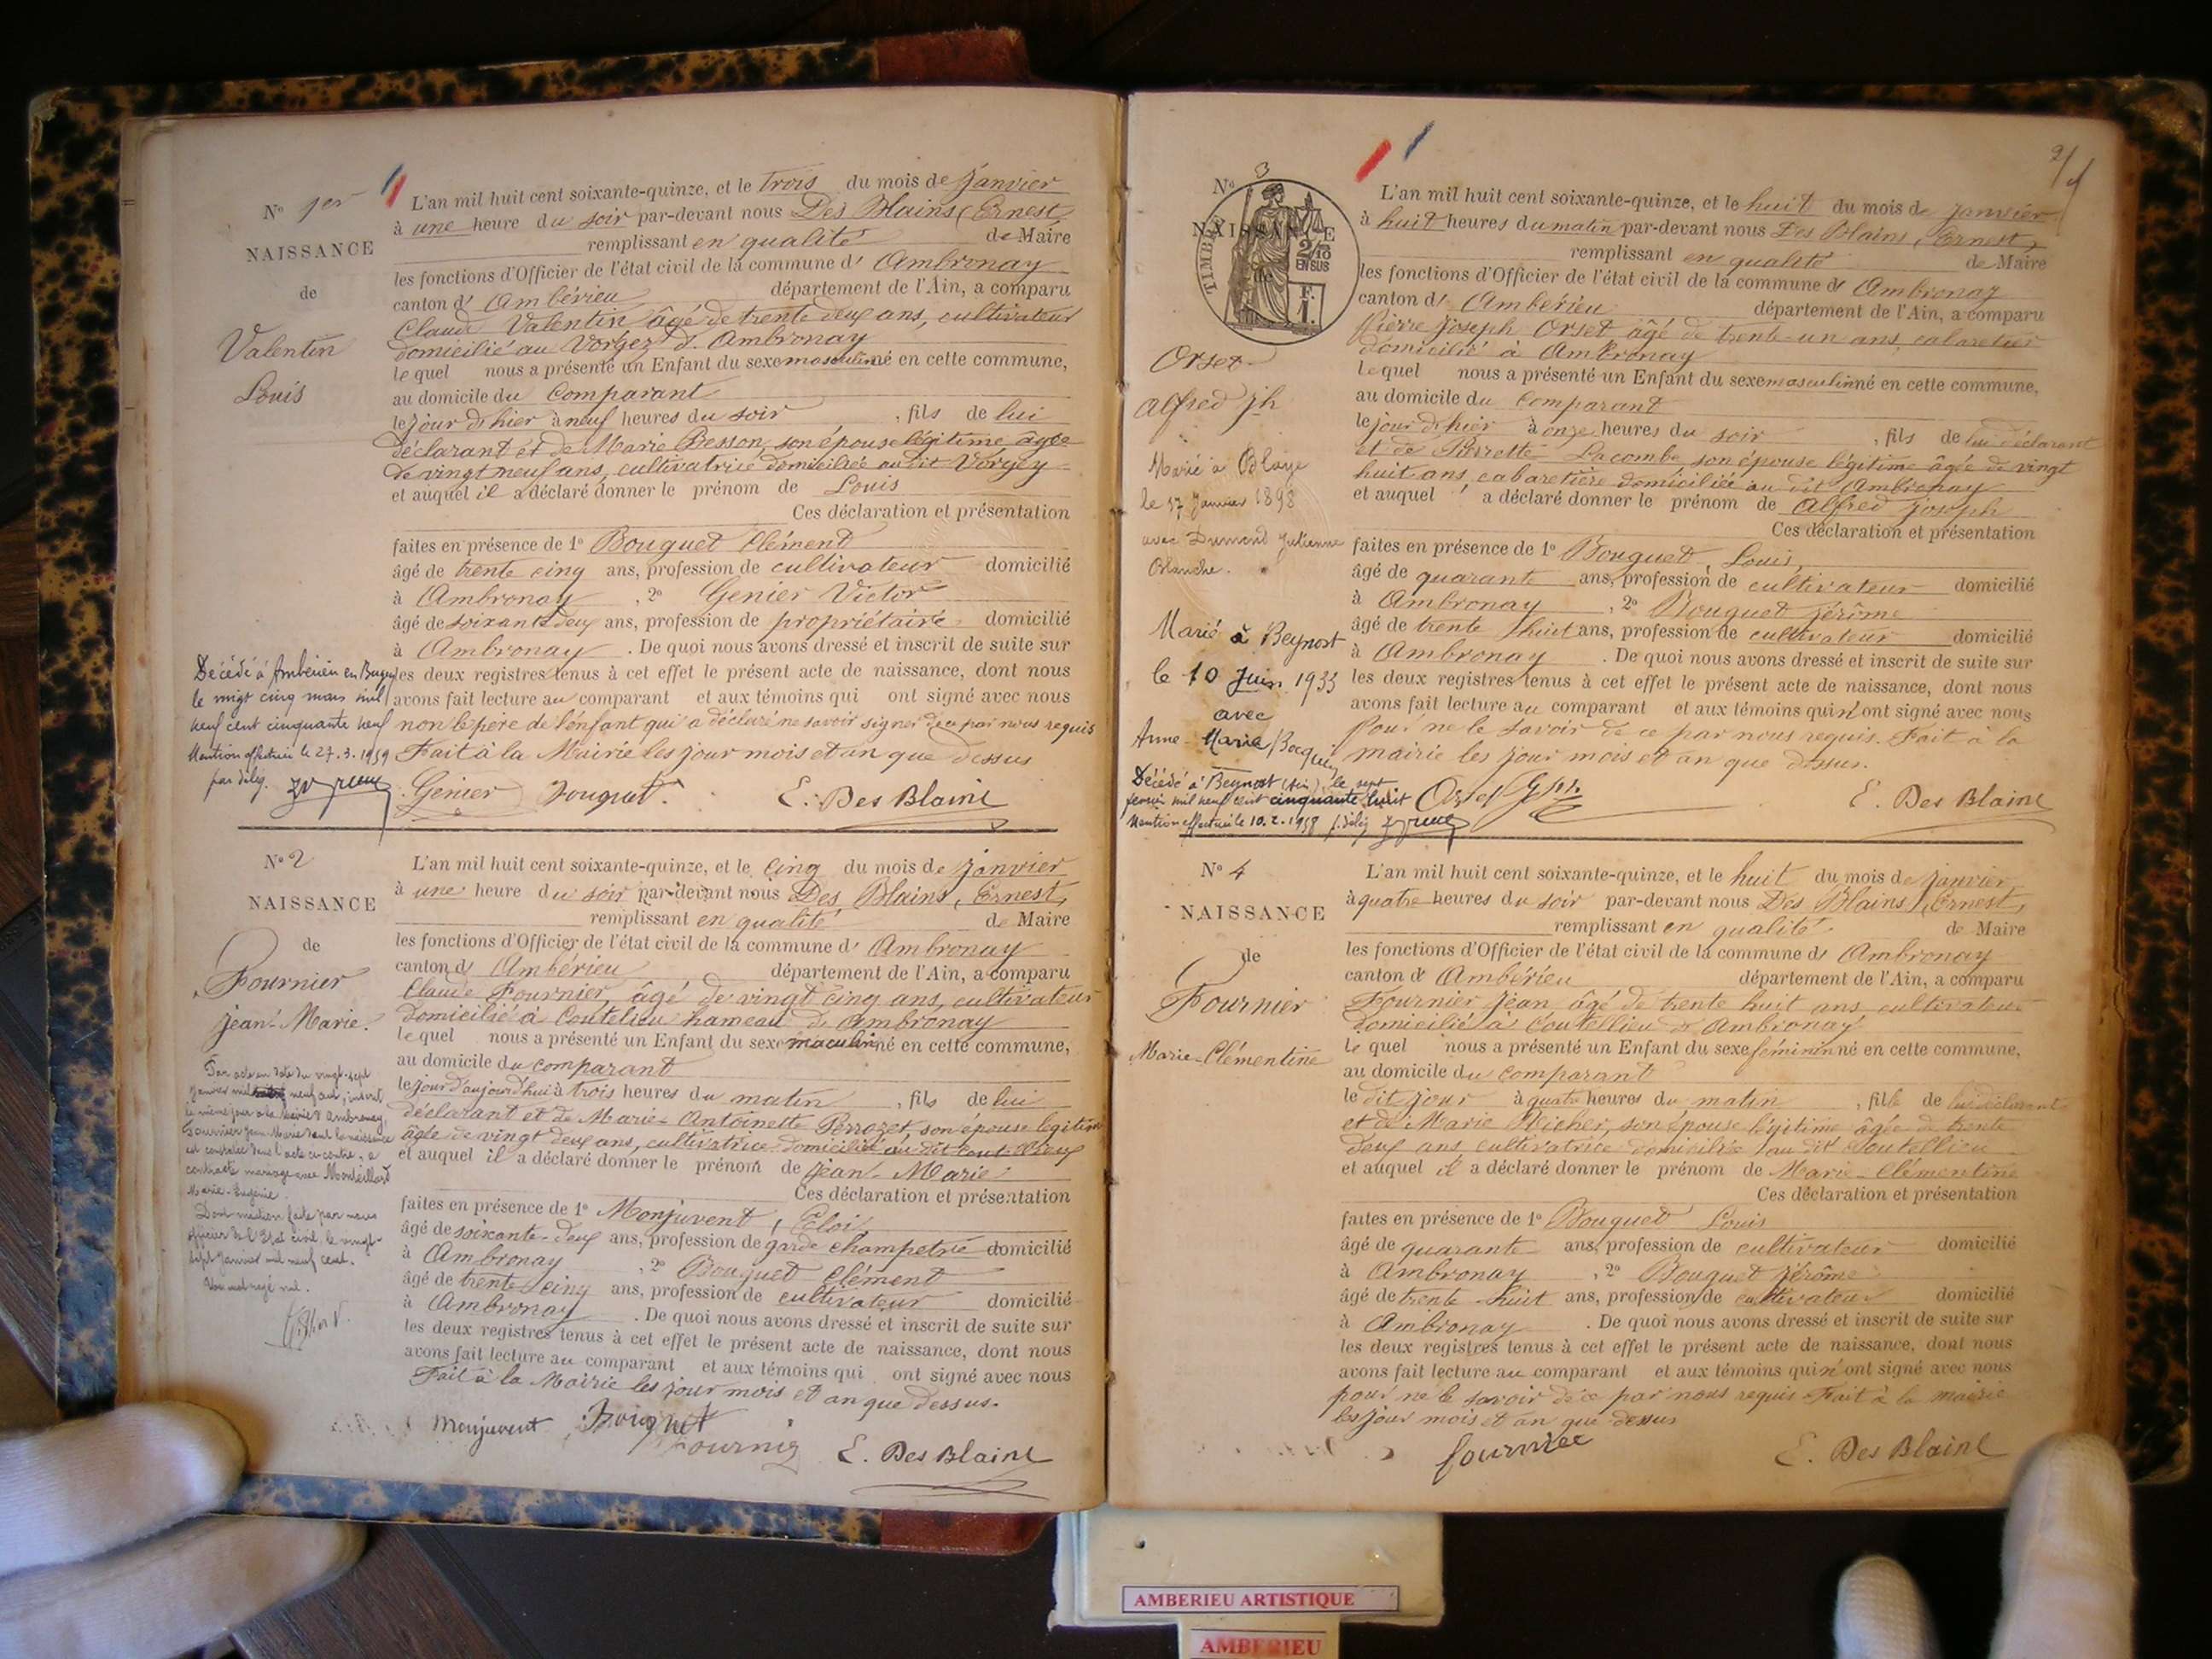 N° 1er
NAISSANCE
de
Valentin
Louis
L'an mil huit cent soixante-quinze, et le trois du mois de janvier
à une heure du soir par-devant nous Des Blains, Ernest,
remplissant en qualité de Maire
les fonctions d'Officier de l'état civil de la commune d' Ambronay
canton d' Ambérieu département de l'Ain, a comparu
Claude Valentin âgé de trente deux ans, cultivateur
domicilié au Vorgey d. Ambronay
le quel nous a présenté un Enfant du sexe masculin né en cette commune,
au domicile du comparant
le jour d'hier à neuf heures du soir , fils de lui
déclarant et de Marie Besson, son épouse légitime âgée
de vingt neuf ans, cultivatrice domiciliée au dit Vorgey
et auquel il a déclaré donner le prénom de Louis
Ces déclaration et présentation
faites en présence de 1° Bouquet Clément
âgé de trente cinq ans, profession de cultivateur domicilié
à Ambronay , 2° Genier Victor
âgé de soixante deux ans, profession de propriétaire domicilié
à Ambronay . De quoi nous avons dressé et inscrit de suite sur
les deux registres tenus à cet effet le présent acte de naissance, dont nous
avons fait lecture au comparant et aux témoins qui ont signé avec nous
non le père de l'enfant qui a déclaré ne savoir signer de ce par nous requis
Fait à la Mairie les jour mois et an que dessus
Genier Bouquet. E. Des Blains
Décédé à Ambérieu en Bugey
le vingt cinq mars mil
neuf cent cinquante neuf
Mention effectuée le 27.3.1959
par délég.
N° 2
NAISSANCE
de
Fournier
Jean-Marie.
Par acte en date du vingt-sept
janvier mil neuf cent, inscrit
le même jour à la Mairie d'Ambronay,
Fournier Jean-Marie dont la naissance
est constatée dans l'acte ci-contre, a
contracté mariage avec Montéillard
Marie-Eugénie.
Dont mention faite par nous
officier de l'Etat civil le vingt-
sept janvier mil neuf cent.
Un mot rayé nul.
L'an mil huit cent soixante-quinze, et le cinq du mois de janvier
à une heure du soir par-devant nous Des Blains, Ernest,
remplissant en qualité de Maire
les fonctions d'Officier de l'état civil de la commune d' Ambronay
canton d' Ambérieu département de l'Ain, a comparu
Claude Fournier, âgé de vingt cinq ans, cultivateur
domicilié à Coutelieu hameau d. Ambronay
le quel nous a présenté un Enfant du sexe maculin né en cette commune,
au domicile du comparant
le jour d'aujourd'hui à trois heures du matin , fils de lui
déclarant et de Marie-Antoinette Perrozet, son épouse légitime
âgée de vingt deux ans, cultivatrice domiciliée au dit
et auquel il a déclaré donner le prénom de Jean-Marie
Ces déclaration et présentation
faites en présence de 1° Monjuvent, Eloi
âgé de soixante-deux ans, profession de garde champetre domicilié
à Ambronay , 2° Bouquet Clément
âgé de trente cinq ans, profession de cultivateur domicilié
à Ambronay . De quoi nous avons dressé et inscrit de suite sur
les deux registres tenus à cet effet le présent acte de naissance, dont nous
avons fait lecture au comparant et aux témoins qui ont signé avec nous
Fait à la Mairie les jour mois et an que dessus.
Monjuvent Bouquet
Fournier E. Des Blains
2/
N° 3
NAISSANCE
de
TIMBRE
2/10
EN SUS
F.
1.
Orset
Alfred jh
Marié à Blaye
le 17 janvier 1898
avec Dumond Julienne
Blanche.
Marié à Beynost
le 10 Juin 1933
avec
Anne-Marie Bocquin
Décédé à Beynost (Ain), le sept
février mil neuf cent cinquante huit
Mention effectuée le 10.2.1958 p. délég
L'an mil huit cent soixante-quinze, et le huit du mois de janvier
à huit heures du matin par-devant nous Des Blains, Ernest,
remplissant en qualité de Maire
les fonctions d'Officier de l'état civil de la commune d' Ambronay
canton d' Ambérieu département de l'Ain, a comparu
Pierre Joseph Orset âgé de trente-un ans, cabaretier
domicilié à Ambronay
le quel nous a présenté un Enfant du sexe masculin né en cette commune,
au domicile du comparant
le jour d'hier à onze heures du soir , fils de lui déclarant
et de Pierrette Lacombe son épouse légitime âgée de vingt
huit ans, cabaretière domiciliée au dit Ambronay
et auquel a déclaré donner le prénom de Alfred joseph
Ces déclaration et présentation
faites en présence de 1° Bouquet, Louis,
âgé de quarante ans, profession de cultivateur domicilié
à Ambronay , 2° Bouquet jérôme
âgé de trente huit ans, profession de cultivateur domicilié
à Ambronay . De quoi nous avons dressé et inscrit de suite sur
les deux registres tenus à cet effet le présent acte de naissance, dont nous
avons fait lecture au comparant et aux témoins qui n'ont signé avec nous
pour ne le savoir de ce par nous requis. Fait à la
mairie les jour mois et an que dessus.
Orset E. Des Blains
N° 4
NAISSANCE
de
Fournier
Marie-Clémentine
L'an mil huit cent soixante-quinze, et le huit du mois de janvier
à quatre heures du soir par-devant nous Des Blains, Ernest,
remplissant en qualité de Maire
les fonctions d'Officier de l'état civil de la commune d' Ambronay
canton d' Ambérieu département de l'Ain, a comparu
Fournier Jean âgé de trente huit ans cultivateur
domicilié à Coutellieu d. Ambronay
le quel nous a présenté un Enfant du sexe féminin né en cette commune,
au domicile du comparant
le dit jour à quatre heures du matin , fille de lui déclarant
et de Marie Micher, son épouse légitime âgée de trente
deux ans cultivatrice domiciliée au dit Coutellieu
et auquel il a déclaré donner le prénom de Marie-Clémentine
Ces déclaration et présentation
faites en présence de 1° Bouquet Louis
âgé de quarante ans, profession de cultivateur domicilié
à Ambronay , 2° Bouquet jérôme
âgé de trente huit ans, profession de cultivateur domicilié
à Ambronay . De quoi nous avons dressé et inscrit de suite sur
les deux registres tenus à cet effet le présent acte de naissance, dont nous
avons fait lecture au comparant et aux témoins qui n'ont signé avec nous
pour ne le savoir de ce par nous requis Fait à la mairie
les jour mois et an que dessus
fournier E. Des Blains
AMBERIEU ARTISTIQUE
AMBERIEU